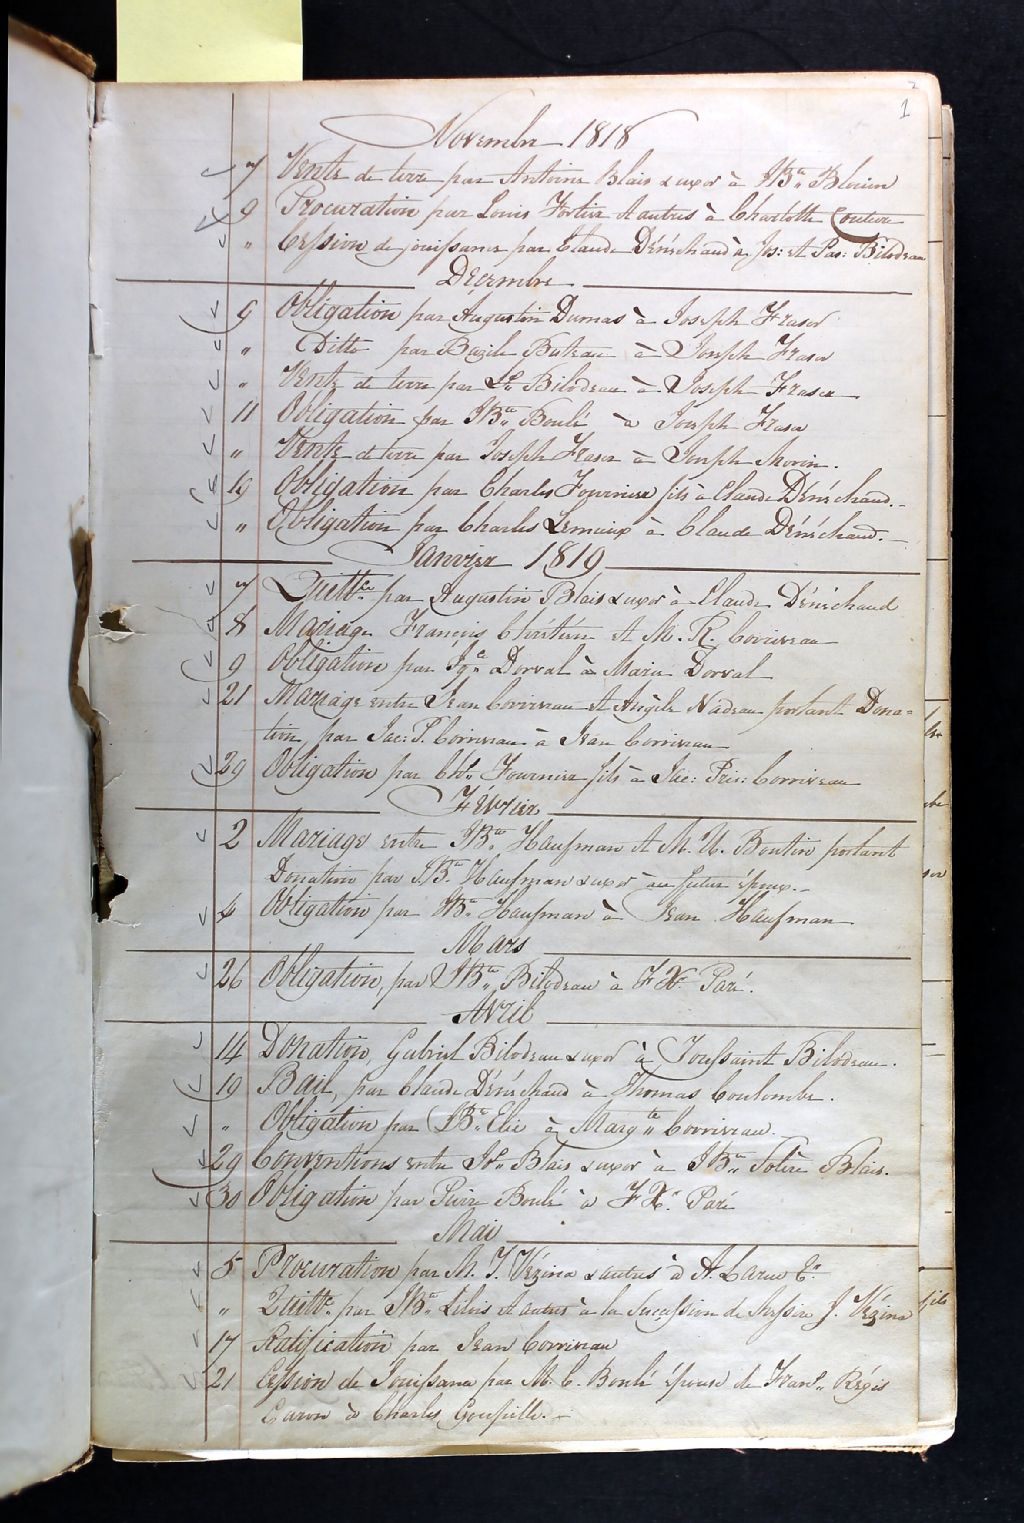 1
Novembre 1818
7 Vente de terre par Antoine Blais & uxor à JBte
9 Procuration par Louis Fortier et autres à Charlotte Couture
" Cession de jouissance par Claude Dénéchaud à Jos: et Pas: Bilodeau
Décembre
9 Obligation par Augustin Dumas à Joseph Fraser
" Ditto par Bazile Buteau à Joseph Fraser
" Vente de terre par Ls Bilodeau à Joseph Fraser
11 Obligation par JBte Boulé à Joseph Fraser
" Vente de terre par Joseph Fraser à Joseph Morin.
19 Obligation par Charles Fournier fils à Claude Dénéchaud.
" Obligation par Charles Lemieux à Claude Dénéchaud.
Janvier 1819
7 Quittce par Augustin Blais & uxor à Claude Dénéchaud
8 Mariage François Chrétien et M. R. Corriveau
9 Obligation par Igce Dorval à Marie Dorval
21 Mariage entre Jean Corriveau et Angèle Nadeau portant Dona=
tion par Jac: P. Corriveau à Jean Corriveau
29 Obligation par Chs Fournier fils à Jac: Pris: Corriveau
Février
2 Mariage entre JBte Haufman et M. U. Boutin portant
Donation par JBte Haufman & uxor au futur époux.
4 Obligation par JBte Haufman à Jean Haufman
Mars
26 Obligation, par JBte Bilodeau à FX. Paré.
Avril
14 Donation, Gabriel Bilodeau & uxor à Toussaint Bilodeau.
19 Bail, par Claude Dénéchaud à Thomas Coulombe.
" Obligation par JBte Elie à Margte Corriveau.
29 Conventions entre Blais & uxor à JBte Blais.
30 Obligation par Pierre Boulé à FX. Paré
Mai
5 Procuration par M. J. Vézina & autres à A. Larue Er
" Quittce par JBte et autres à la Succession de Messire J. Vézina
17 Ratification par Jean Corriveau
21 Cession de Jouissance par M. C. Boulé épouse de Frans Régis
Caron à Charles Goupille.